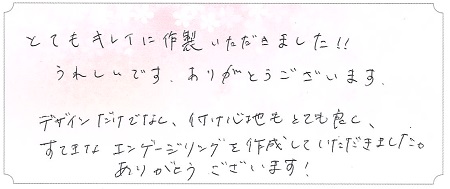 とてもキレイに作製いただきました!!
うれしいです。ありがとうございます。
デザインだけでなく、付け心地もとても良く、
すてきなエンゲージリングを作成していただきました。
ありがとうございます!